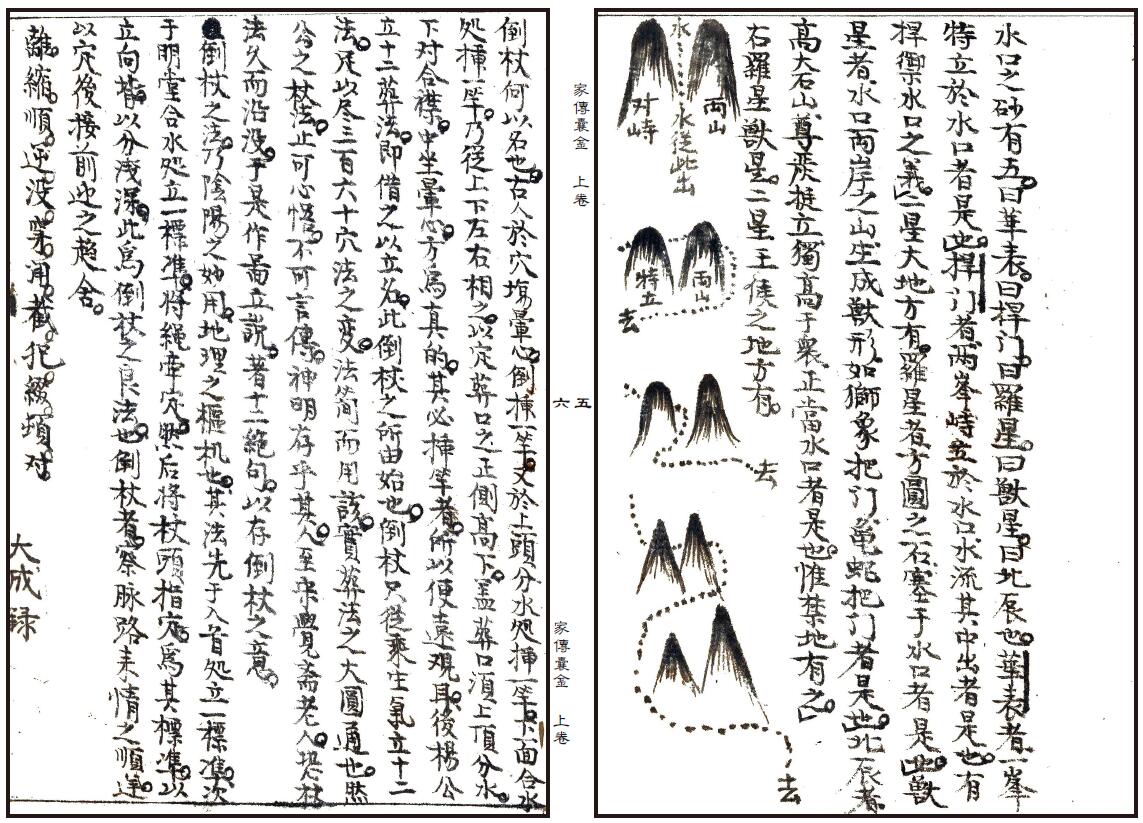 水口之砂有五曰華表曰捍门曰羅星曰獸星曰北辰也華表者一峯
特立於水口者是也捍门者兩峯峙立於水口水流其中出者是也有
捍禦水口之義二星大地方有羅星者方圓之石塞于水口者是也獸
星者水口兩岸之山生成獸形如獅象把门龜蛇把门者是也北辰者
高大石山尊嚴挺立獨高于衆正當水口者是也惟禁地有之
右羅星獸星二星王侯之地方有
兩山
水 水從此出
对峙
兩山
特立
去
去
去
家傳囊金 上卷
五
六
家傳囊金 上卷
倒杖何以名也古人於穴塲暈心倒挿一竿又於上頭分水処挿一竿下面合水
処挿一竿乃從上下左右相之以定葬口之正側高下盖葬口湏上頂分水
下对合襟中坐暈心方爲真的其必挿竿者所以便遠观耳後楊公
立十二葬法即借之以立名此倒杖之所由始也倒杖只從乘生氣立十二
法足以尽三百六十穴法之变法简而用該實葬法之大圓通也然
公之杖法止可心悟不可言傳神明存乎其人至宗覺斋老人恐杖
法久而沿没于是作啚立説著十二絶句以存倒杖之意
倒杖之法乃陰陽之妙用地理之樞机也其法先于入首処立一標准次
于明堂合水処立一標準将繩牵穴然后将杖頭指穴爲其標準以
立向皆以分浅深此爲倒杖之良法也倒杖者察脉路来情之順逆
以穴後接前迎之趋舍
離縮順逆没穿用截犯綴頓对
大成録